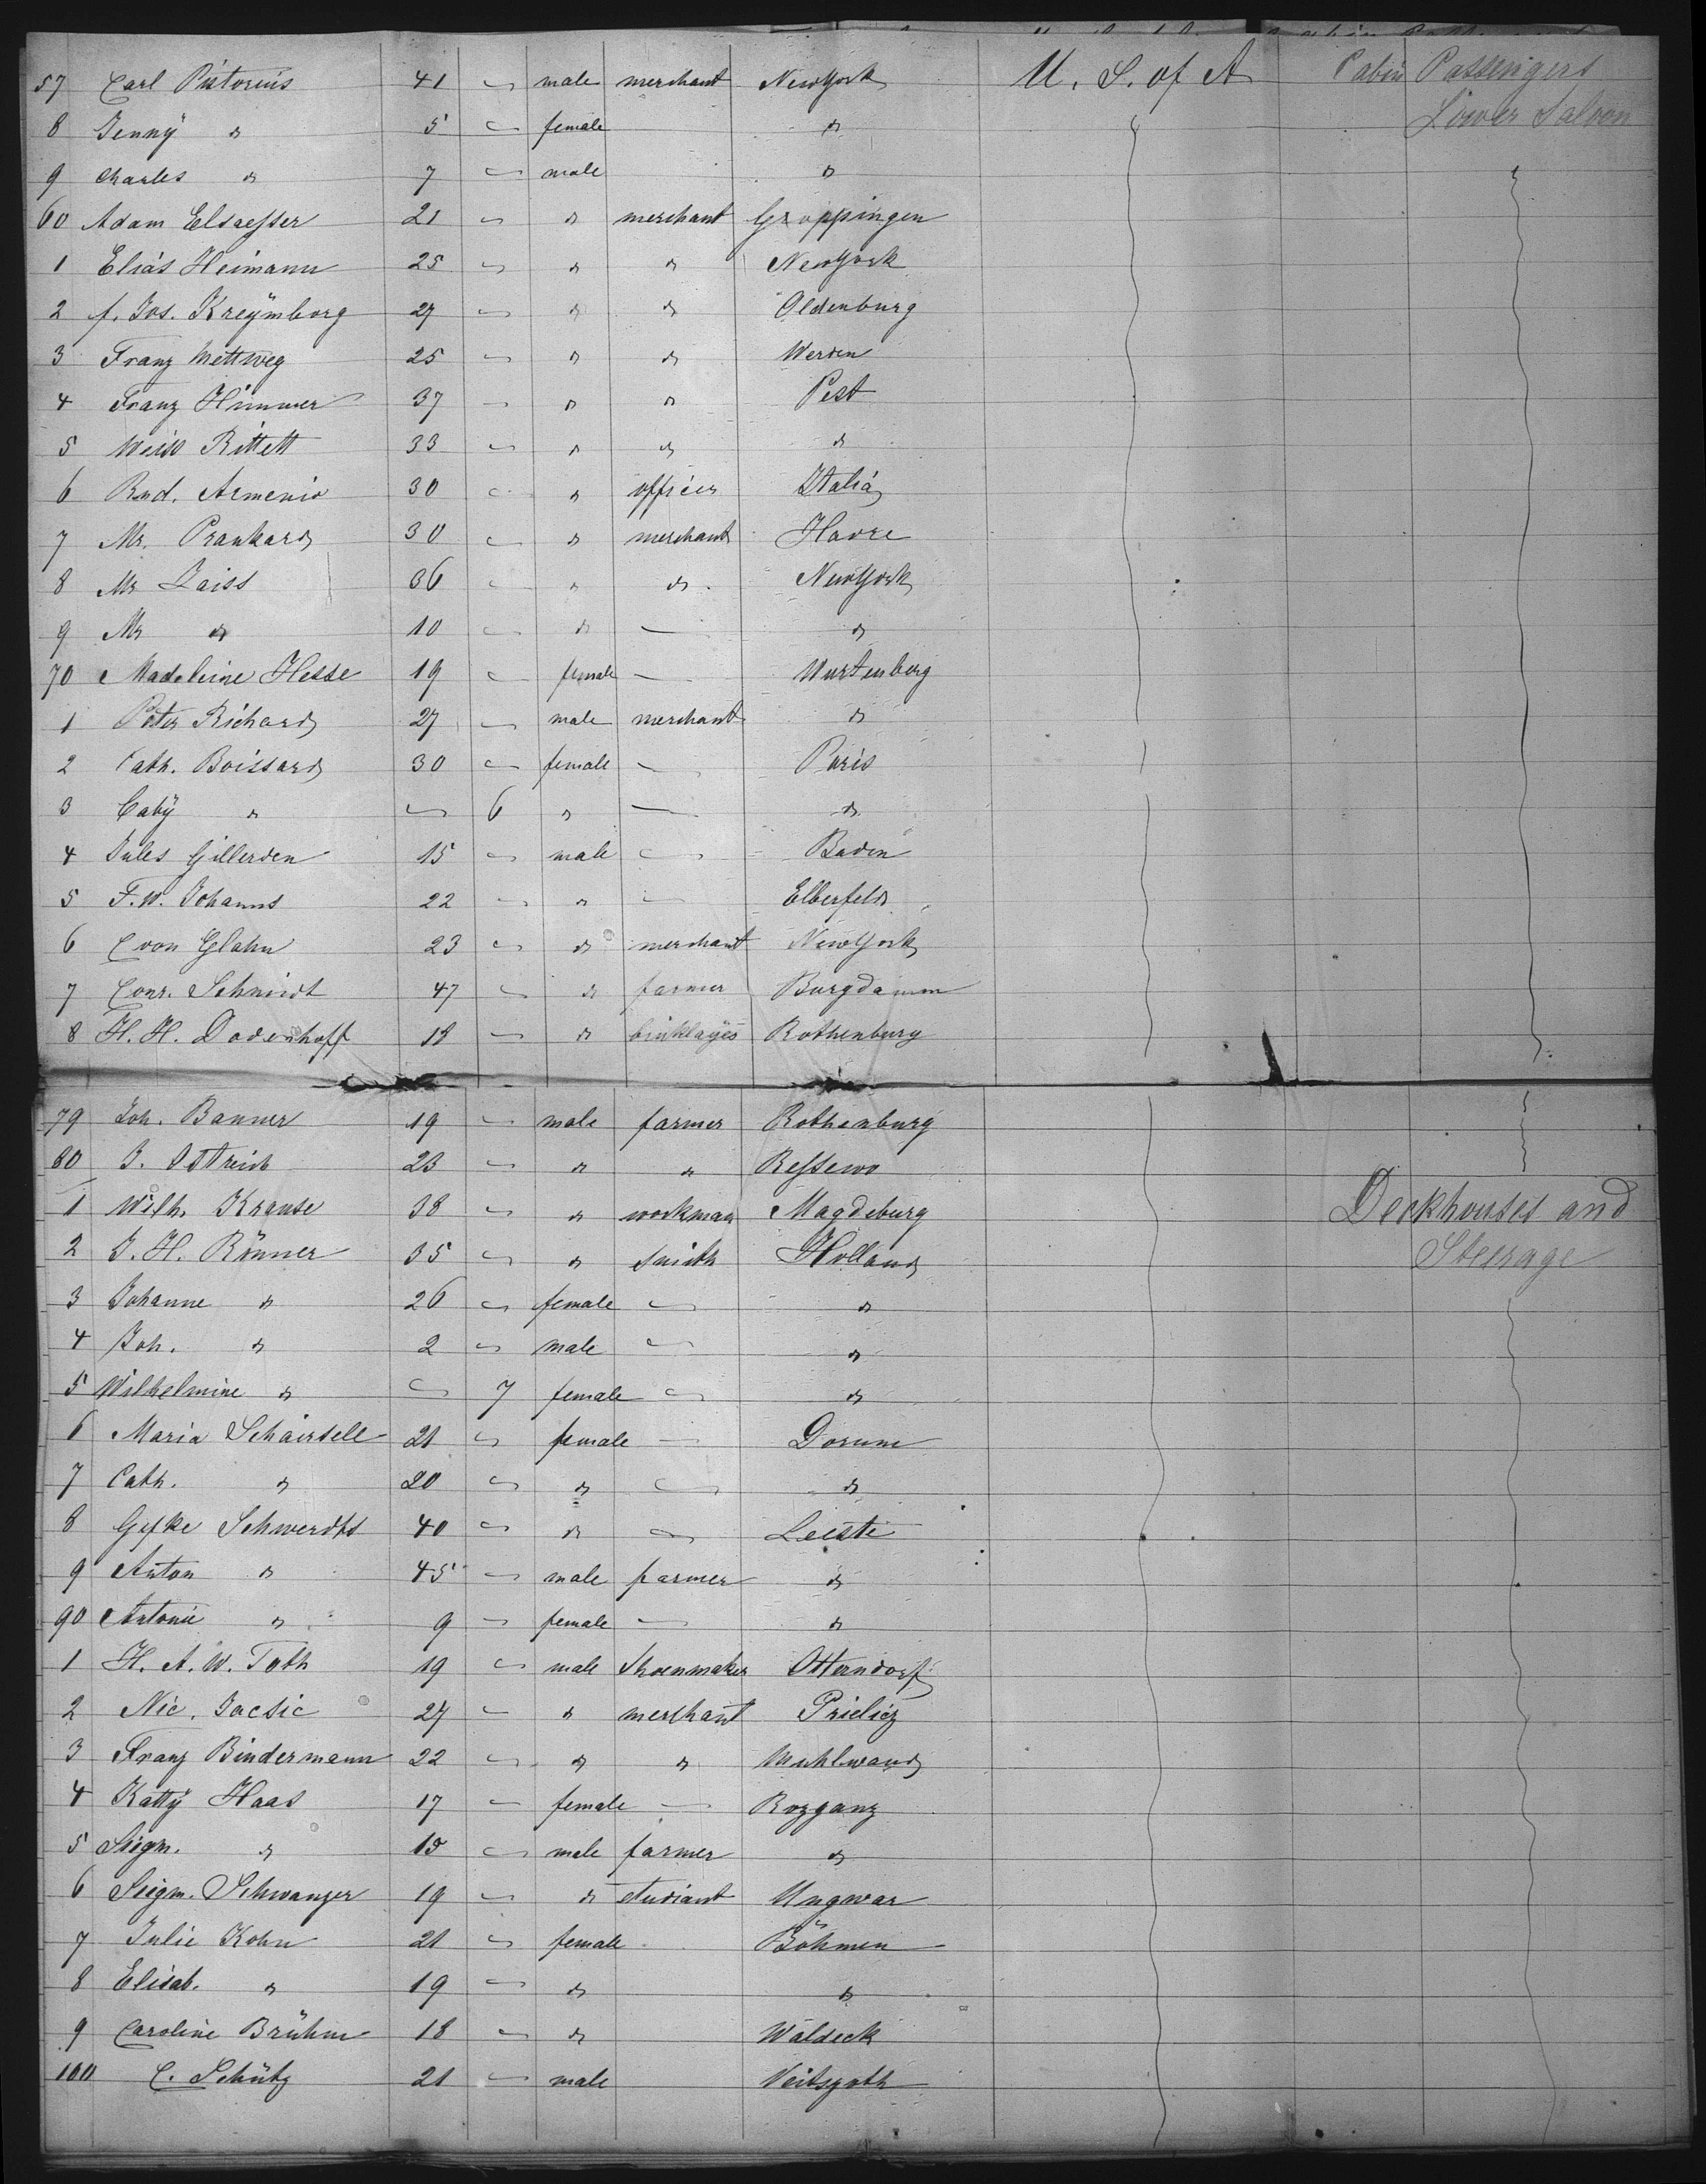 57 Carl Pistorius 41 male merchant NewYork U. S. of A Cabin Passengers
8 Jenny " 5 female " Lower Saloon
9 Charles " 7 male "
60 Adam Elsaesser 21 " merchant Groppingen
1 Elias Heimann 25 " " NewYork
2 f. Jos. Kreÿmborg 27 " " Oldenburg
3 Franz Mettweg 25 " " Werden
4 Franz Himmer 37 " " Pest
5 Weiss Rittett 33 " " "
6 Rud. Armenio 30 " officer Italia
7 Mr. Prankard 30 " merchant Havre
8 Mr Laiss 36 " " NewYork
9 Mr " 10 " — "
70 Madeleine Hesse 19 female — Wurtenberg
1 Peter Richard 27 male merchant "
2 Cath. Boissard 30 female — Paris
3 Babÿ " — 6 " — "
4 Jules Gillerden 15 male — Baden
5 F. W. Johanns 22 " — Elberfeld
6 C von Glahn 23 " merchant NewYork
7 Conr. Schmidt 47 " farmer Burgdamm
8 H. H. Dodenhoff 18 " Rothenburg
79 Joh. Banner 19 male farmer Rothenburg
80 J. Ostreich 23 " " Ressewo
1 Wilh. Krause 38 " workman Magdeburg Deckhouses and
2 J. H. Rönner 35 " smith Holland Steerage
3 Johanne " 26 female — "
4 Joh. " 2 male — "
5 Wilhelmine " — 7 female — "
6 Maria Schairsell 21 female — Dorum
7 Cath. " 20 " — "
8 Gefke Schwerdts 40 " — Leeste
9 Anton " 45 male farmer "
90 Antonie " 9 female — "
1 H. A. W. Toth 19 male Shoenmaker Otterndorf
2 Nic. Jacsic 27 " merchant Prielicz
3 Franz Bindermann 22 " " Muhlwand
4 Kattÿ Haas 17 female — Rozganz
5 Siegm. " male farmer "
6 Siegm. Schwanger 19 " student Ungwar
7 Julie Kohn 21 female Böhmen
8 Elisab. " 19 " "
9 Caroline Brühm 18 " Waldeck
100 C. Schütz 21 male Veitsgoth